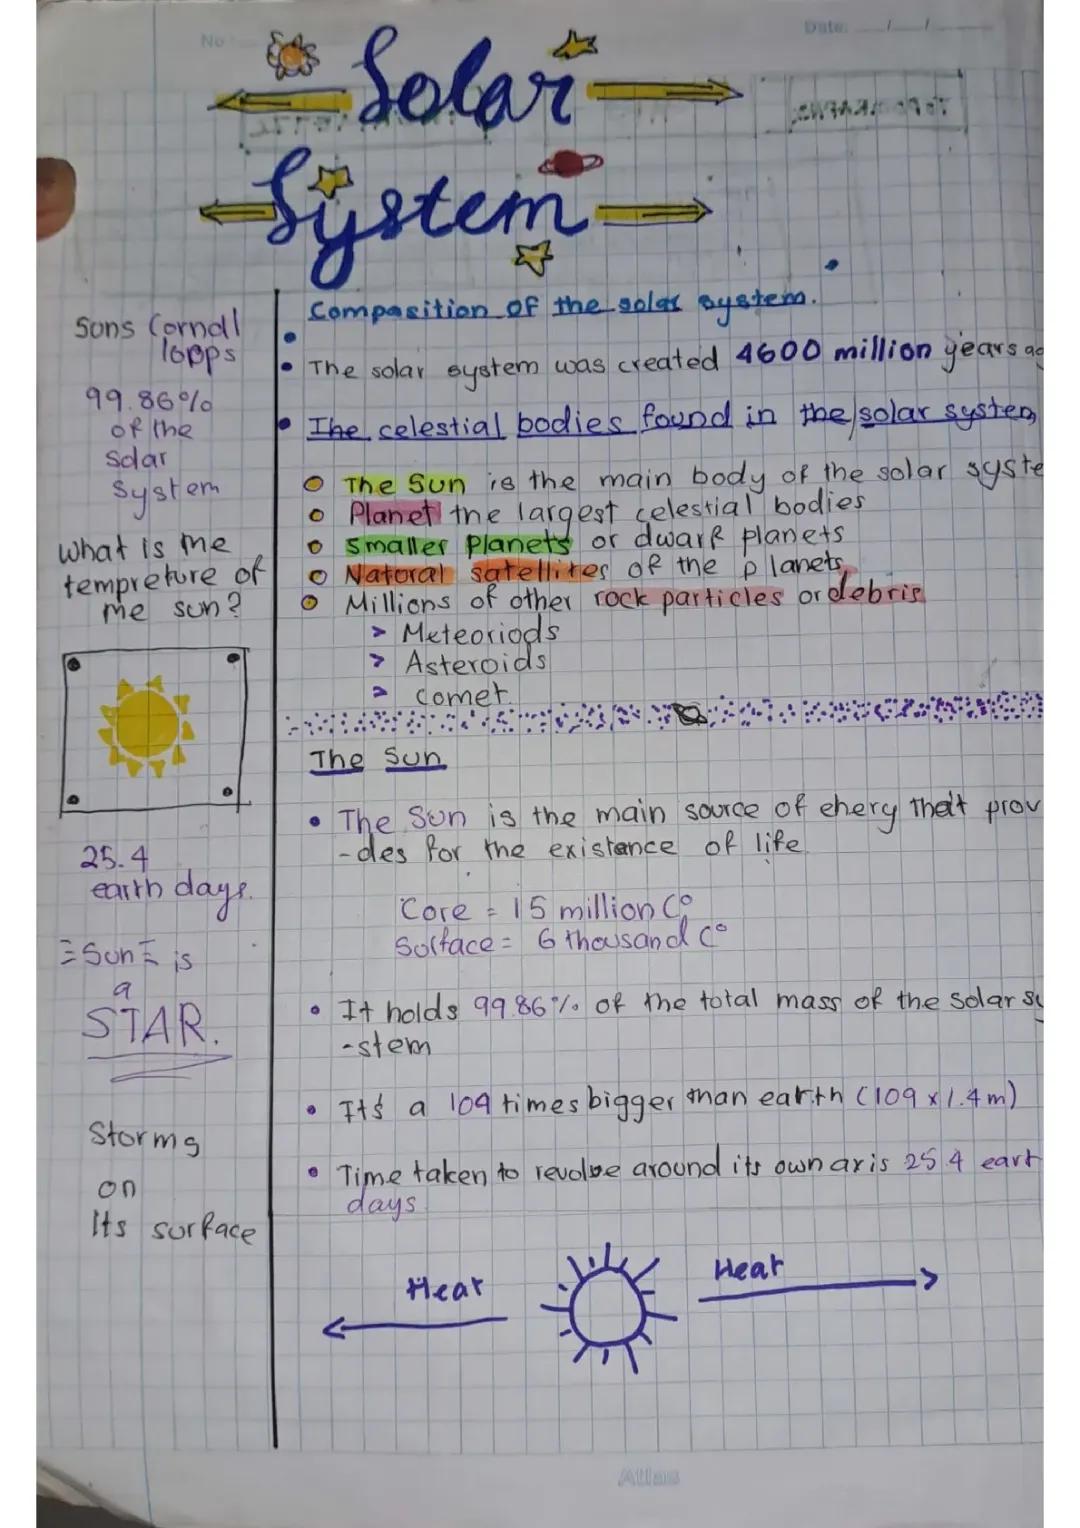 No
Date: / /
Solar
System
Suns Corndl
lopps
99.86%
of the
Solar
System
What is the
tempreture of
the sun?
25.4
earth days.
Sun is
a
STAR.
Storms
on
Its surface
Composition of the solar system.
The solar system was created 4600 million years ag
The celestial bodies found in the solar system
The Sun is the main body of the solar syste
Planet the largest celestial bodies
Smaller Planets or dwarf planets
Natural satellites of the planets
Millions of other rock particles or debris
> Meteoriods
> Asteroids
> comet
The Sun
The Sun is the main source of enery that prov
-des for the existence of life
Core = 15 million C°
Surface = 6 thousand C°
It holds 99.86% of the total mass of the solar sy
-stem
It's a 109 times bigger than earth (109 x 1.4 m)
Time taken to revolve around its own axis 25.4 eart
days
Heat
Heat
Atlas